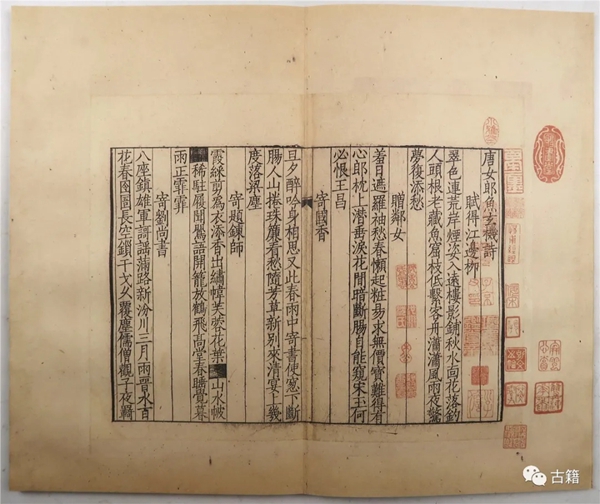 唐女郎魚玄機詩
賦得江邊柳
翠色連荒岸煙姿入遠樓影鋪秋水面花落釣
人頭根老藏魚窟枝低繫客舟瀟瀟風雨夜驚
夢復添愁
贈鄰女
羞日遮羅袖愁春懶起粧易求無價寳難得有
心郎枕上潜垂淚花間暗斷腸自能窺宋玉何
必恨王昌
寄國香
旦夕醉吟身相思又此春雨中寄書使窓下斷
腸人山捲珠簾看愁隨芳草新别來清宴上幾
度落梁塵
寄題鍊師
霞綵剪為衣添香出繡幃芙蓉花葉山水帔
稀駐履聞鸎語開籠放鶴飛高堂春睡覺暮
雨正霏霏
寄劉尚書
八座鎮雄軍歌謡滿路新汾川三月雨晉水百
花春囹圄長空鎖干戈久覆塵儒僧觀子夜羇
古籍